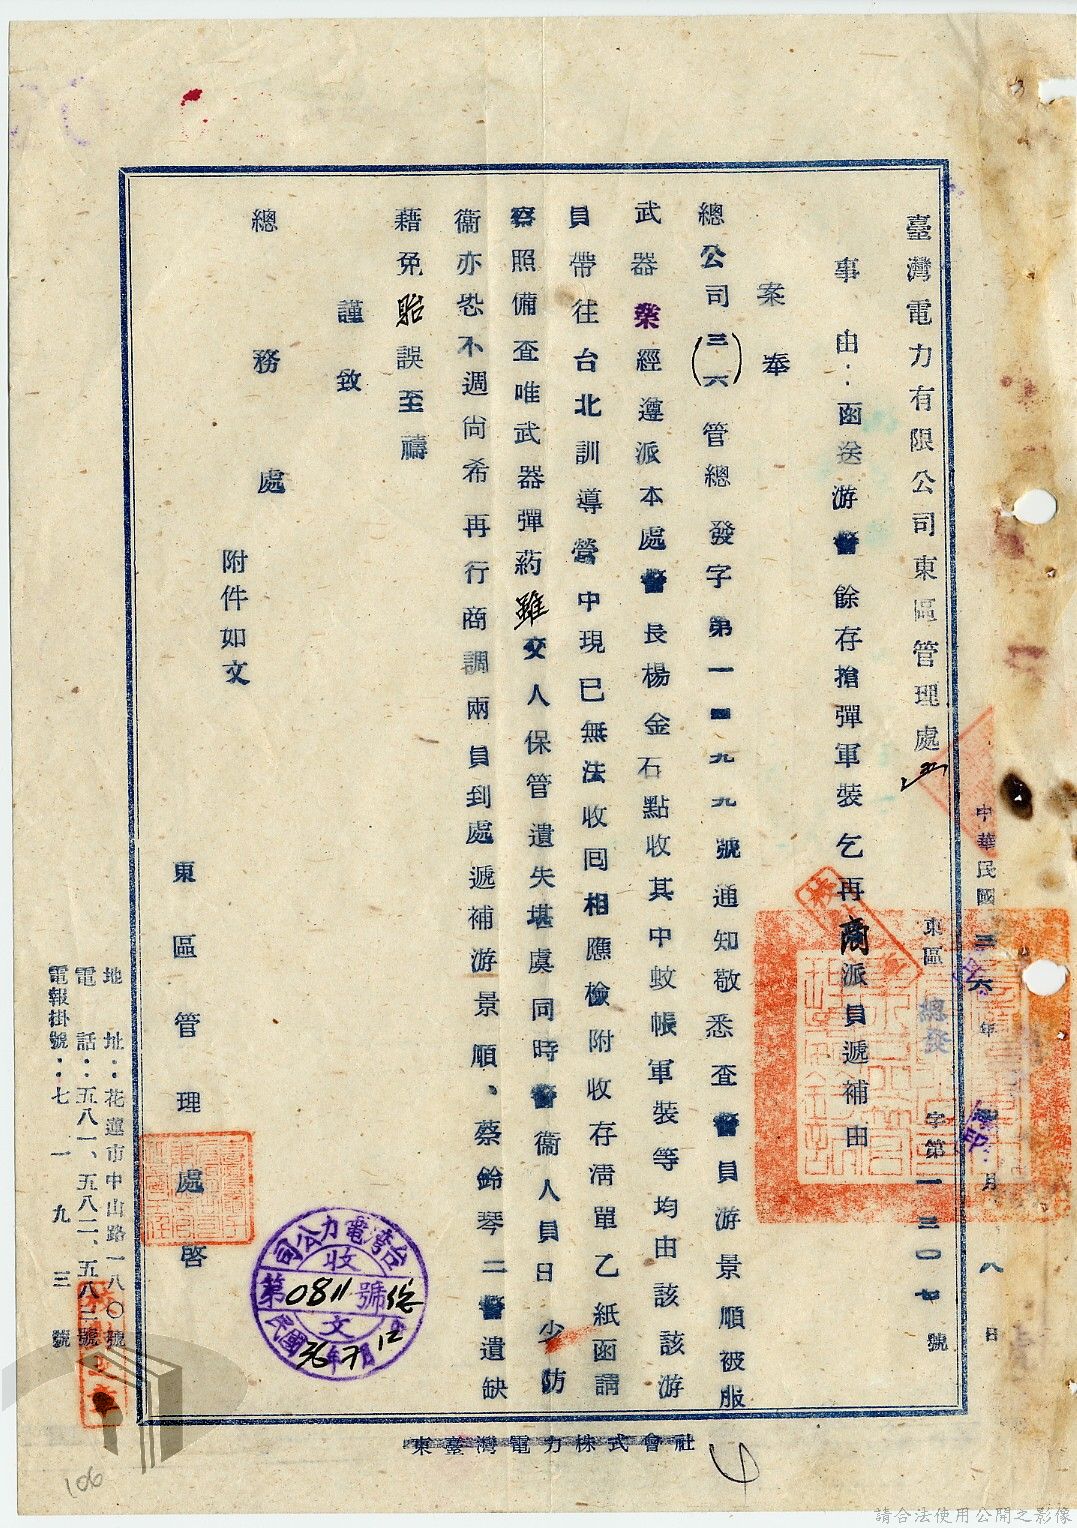 中華民國三六年 月八日
東區總發字第一三〇七號
臺灣電力有限公司東區管理處
事由：函送游警餘存搶彈軍裝乞再商派員遞補由
案奉
總公司(三六)管總發字第一四九九號通知敬悉查警員游景順被服
武器業經遵派本處警長楊金石點收其中蚊帳軍裝等均由該該游
員帶往台北訓導營中現已無法收囘相應檢附收存淸單乙紙函請
察照備查唯武器彈葯雖交人保管遺失堪虞同時警衞人員日少防
衞亦恐不週尙希再行商調兩員到處遞補游景順、蔡鈴琴二警遺缺
藉免貽誤至禱
謹致
總務處
附件如文
東區管理處啓
地址：花蓮市中山路一八〇號
電話：五八一、五八二、五八三號
電報掛號：七一九三號
台灣電力公司
收
第0811號
文
民國36年7月12日
東臺灣電力株式會社
106
請合法使用公開之影像